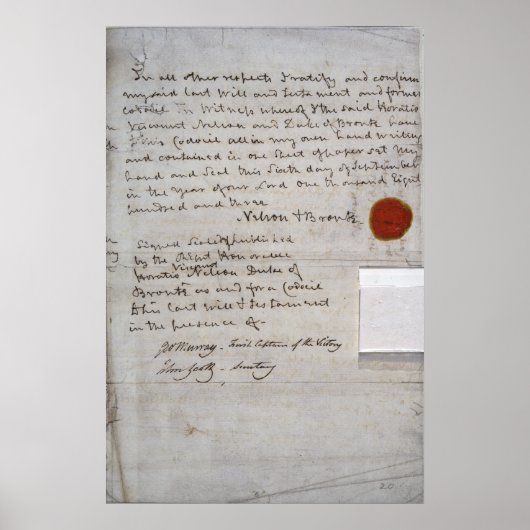 In all other respects I ratify and confirm
my said Last Will and Testament and former
Codicil In Witness whereof I the said Horatio
Viscount Nelson and Duke of Bronte have
this Codocil all in my own hand writing
and contained in one Sheet of paper set my
hand and Seal this Sixth day of September
in the year of our Lord one thousand Eight
hundred and three
Nelson & Bronte
Signed Sealed & published
by the Right Honorable
Viscount
Horatio Nelson Duke of
Bronte as and for a Codocil
to his last Will & Testament
in the presence of -
Geo Murray - First Captain of the Victory
John Scott - Secretary
20